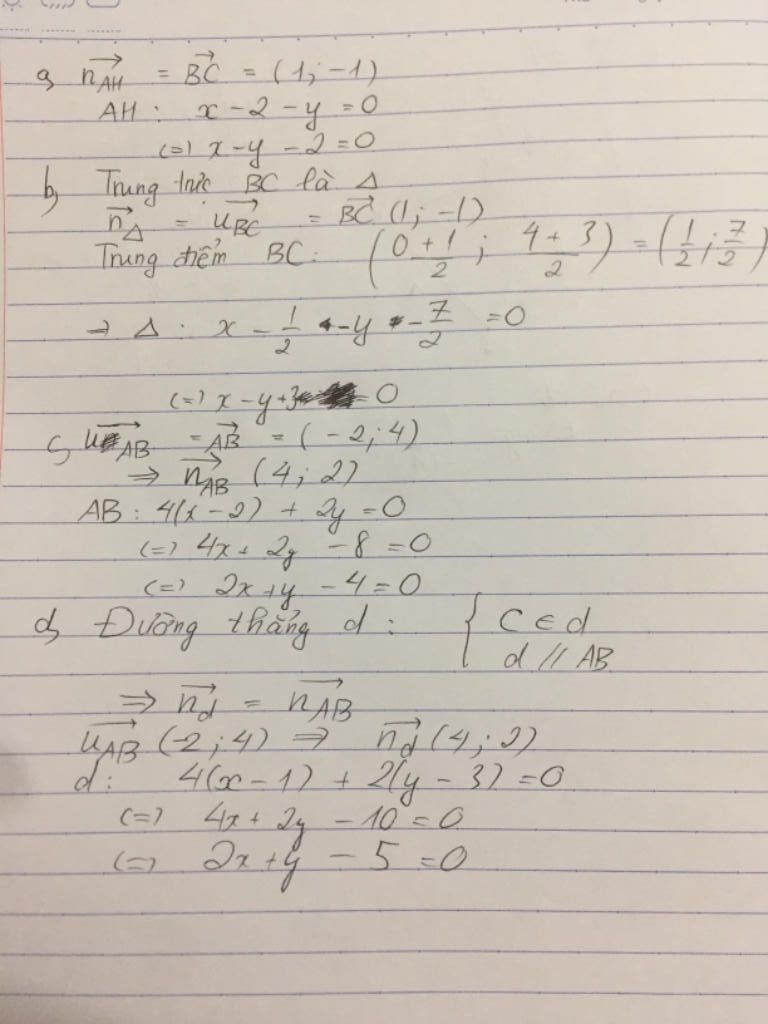 a, n_AH = BC = (1; -1)
AH: x - 2 - y = 0
(=) x - y - 2 = 0
b, Trung trực BC là Δ
n_Δ = u_BC = BC (1; -1)
Trung điểm BC: ((0 + 1)/2 ; (4 + 3)/2) = (1/2 ; 7/2)
→ Δ: x - 1/2 - y - 7/2 = 0
(=) x - y + 3 = 0
c, u_AB = AB = (-2; 4)
⇒ n_AB (4; 2)
AB: 4(x - 2) + 2y = 0
(=) 4x + 2y - 8 = 0
(=) 2x + y - 4 = 0
d, Đường thẳng d: { C ∈ d
d // AB
⇒ n_d = n_AB
u_AB (-2; 4) ⇒ n_d (4; 2)
d: 4(x - 1) + 2(y - 3) = 0
(=) 4x + 2y - 10 = 0
(=) 2x + y - 5 = 0